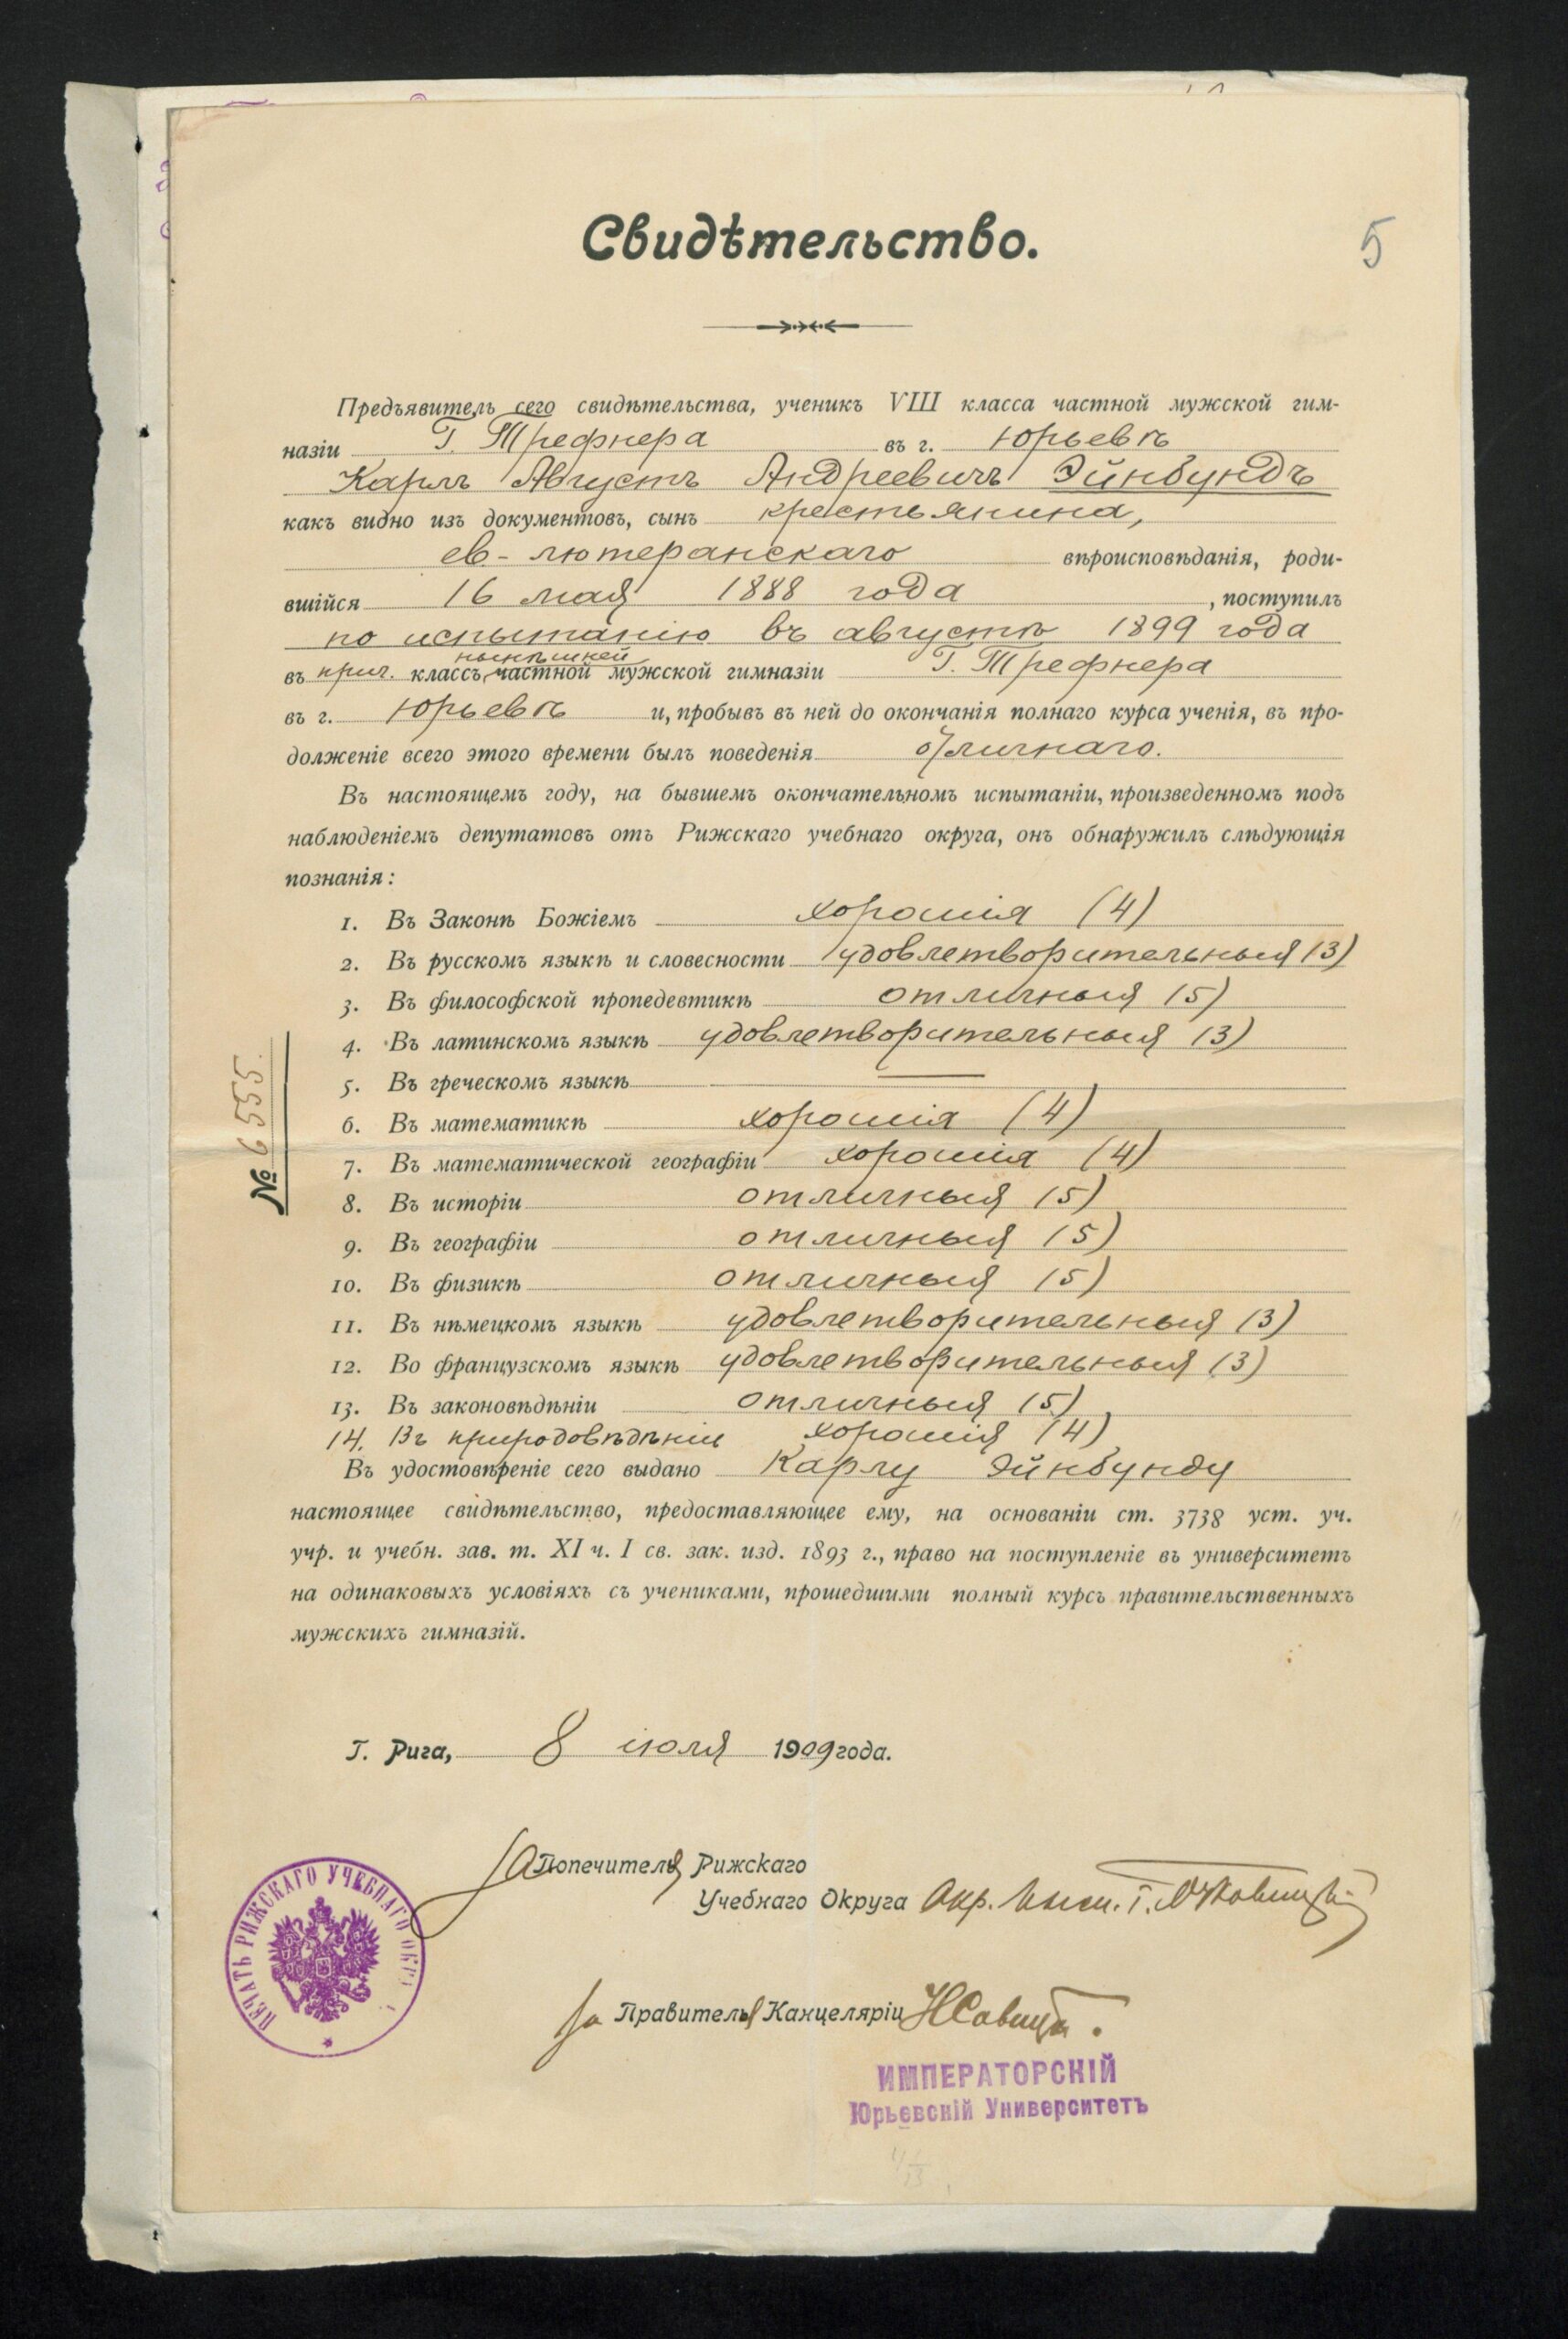 Свидѣтельство.
5
Предъявитель сего свидѣтельства, ученикъ VIII класса частной мужской гим-
назіи Г. Трефнера въ г. Юрьевѣ
Карлъ Августъ Андреевичъ Эйнбундъ
какъ видно изъ документовъ, сынъ крестьянина,
ев-лютеранскаго вѣроисповѣданія, роди-
вшійся 16 мая 1888 года, поступилъ
по испытанію въ августѣ 1899 года
нынѣшней
въ приг. классъ частной мужской гимназіи Г. Трефнера
въ г. Юрьевѣ и, пробывъ въ ней до окончанія полнаго курса ученія, въ про-
долженіе всего этого времени былъ поведенія отличнаго.
Въ настоящемъ году, на бывшемъ окончательномъ испытаніи, произведенномъ подъ
наблюденіемъ депутатовъ отъ Рижскаго учебнаго округа, онъ обнаружилъ слѣдующія
познанія:
1. Въ Законѣ Божіемъ хорошія (4)
2. Въ русскомъ языкѣ и словесности удовлетворительныя (3)
3. Въ философской пропедевтикѣ отличныя (5)
4. Въ латинскомъ языкѣ удовлетворительныя (3)
5. Въ греческомъ языкѣ —
6. Въ математикѣ хорошія (4)
7. Въ математической географіи хорошія (4)
8. Въ исторіи отличныя (5)
9. Въ географіи отличныя (5)
10. Въ физикѣ отличныя (5)
11. Въ нѣмецкомъ языкѣ удовлетворительныя (3)
12. Во французскомъ языкѣ удовлетворительныя (3)
13. Въ законовѣдѣніи отличныя (5)
14. Въ природовѣдѣніи хорошія (4)
Въ удостовѣреніе сего выдано Карлу Эйнбунду
настоящее свидѣтельство, предоставляющее ему, на основаніи ст. 3738 уст. уч.
учр. и учебн. зав. т. XI ч. I св. зак. изд. 1893 г., право на поступленіе въ университетъ
на одинаковыхъ условіяхъ съ учениками, прошедшими полный курсъ правительственныхъ
мужскихъ гимназій.
№ 6555.
Г. Рига, 8 іюля 1909 года.
За Попечителя Рижскаго
Учебнаго Округа Окр. Инсп.
ПЕЧАТЬ РИЖСКАГО УЧЕБНАГО
За Правителя Канцеляріи
ИМПЕРАТОРСКІЙ
Юрьевскій Университетъ